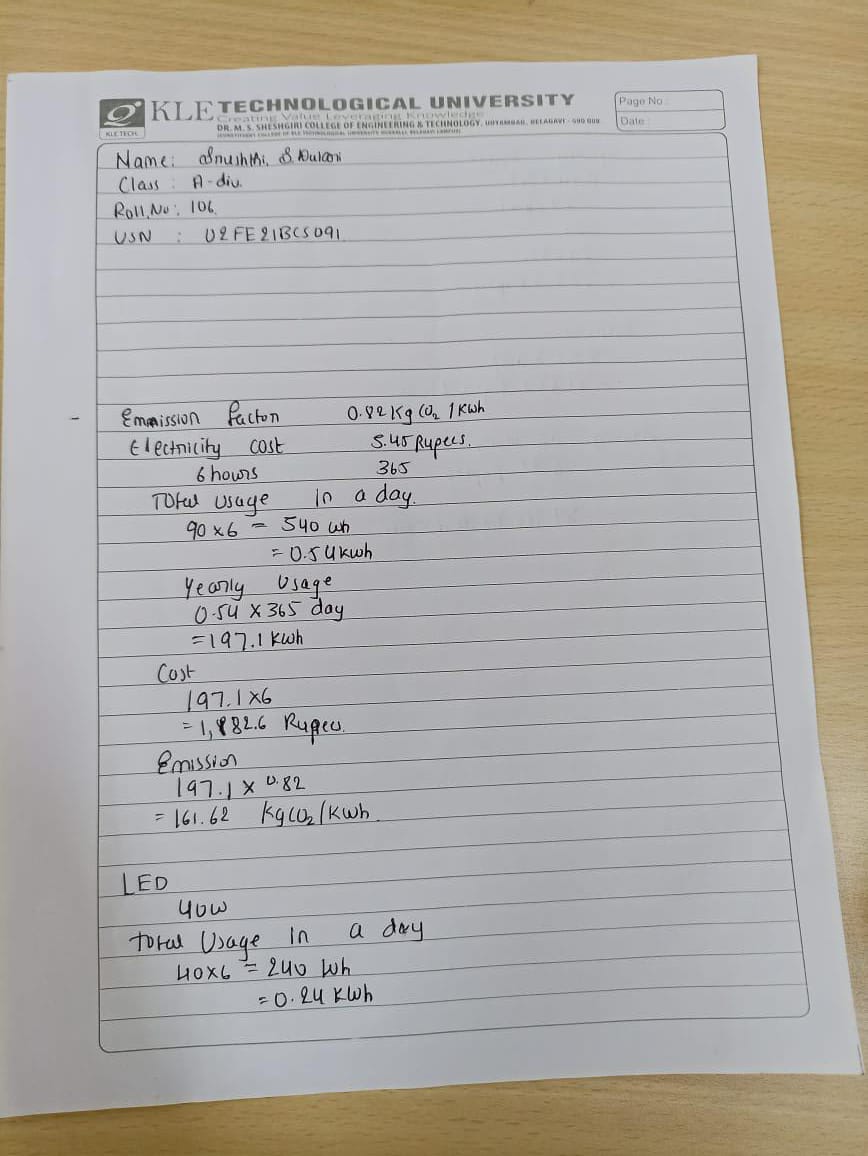 KLE TECHNOLOGICAL UNIVERSITY
Creating Value Leveraging Knowledge
KLE TECH
DR. M. S. SHESHGIRI COLLEGE OF ENGINEERING & TECHNOLOGY, UDYAMBAG, BELAGAVI - 590 008
Page No.:
Date:
Name: S.
Class : A-div.
Roll.No: 106
USN : 02FE21BCS091
- Emmission factor 0.82 Kg CO2 / Kwh
Electricity cost 5.45 Rupees.
6 hours 365
Total usage in a day.
90 x 6 = 540 wh
= 0.54 kwh
Yearly Usage
0.54 x 365 day
= 197.1 Kwh
Cost
197.1 x 6
= 1,182.6 Rupees.
Emission
197.1 x 0.82
= 161.62 KgCO2/Kwh.
LED
40W
Total Usage in a day
40x6 = 240 Wh
= 0.24 Kwh